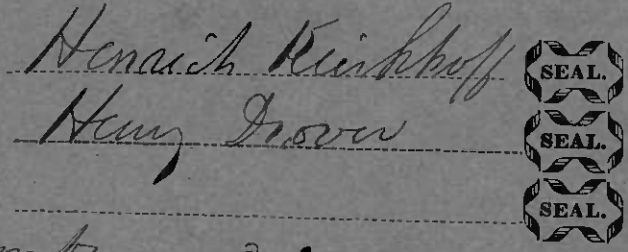 Henrich Kirkhoff SEAL.
Henry Drover SEAL.
SEAL.